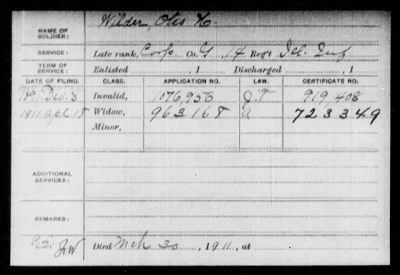 NAME OF SOLDIER: Wilder, Otis H.
SERVICE: Late rank, Corp. Co. G, 14 Reg't Ill. Inf
TERM OF SERVICE: Enlisted , 1 Discharged , 1
DATE OF FILING. CLASS. APPLICATION NO. LAW. CERTIFICATE NO.
Invalid, 1076,956 919,408
1911 Apr 18 Widow, 962168 a 723349
Minor,
ADDITIONAL SERVICES:
REMARKS:
Died Mch 30, 1911, at